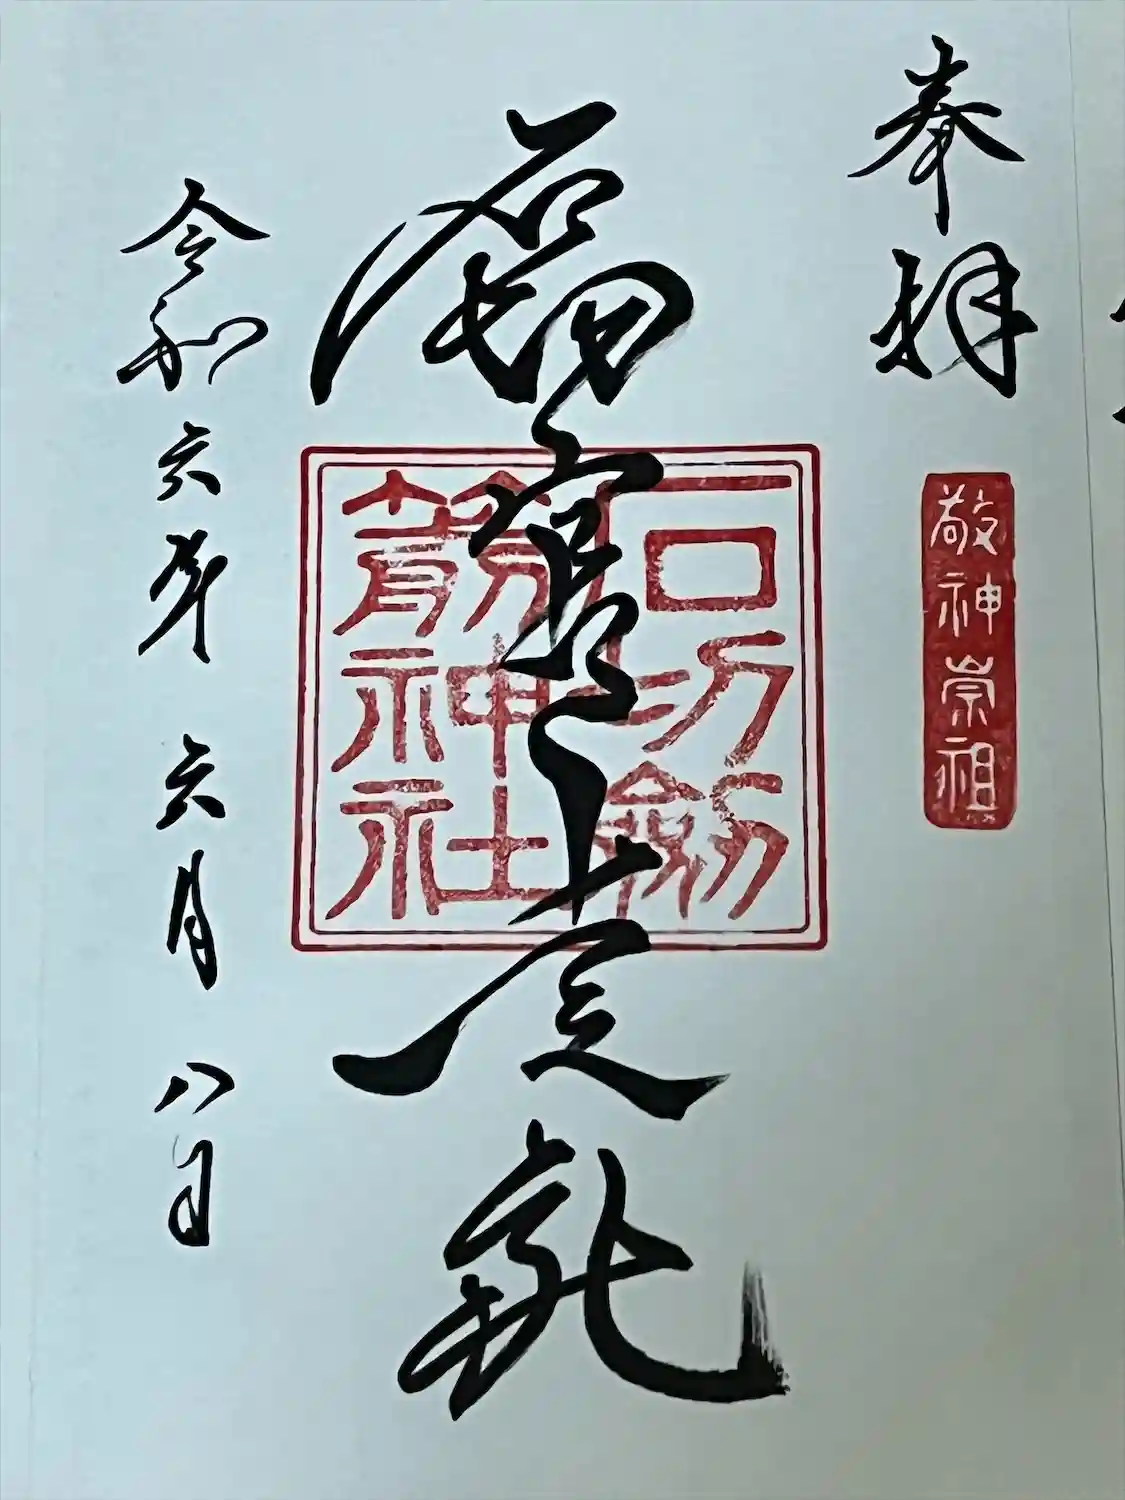 奉拝
敬神崇祖
宮上之
石切劔
箭神社
令和六年 六月 八日